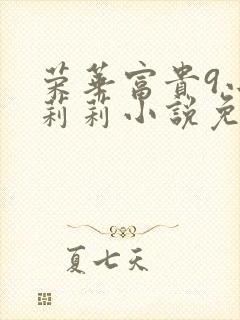 荣华富貴9
莉莉小説免
夏七天